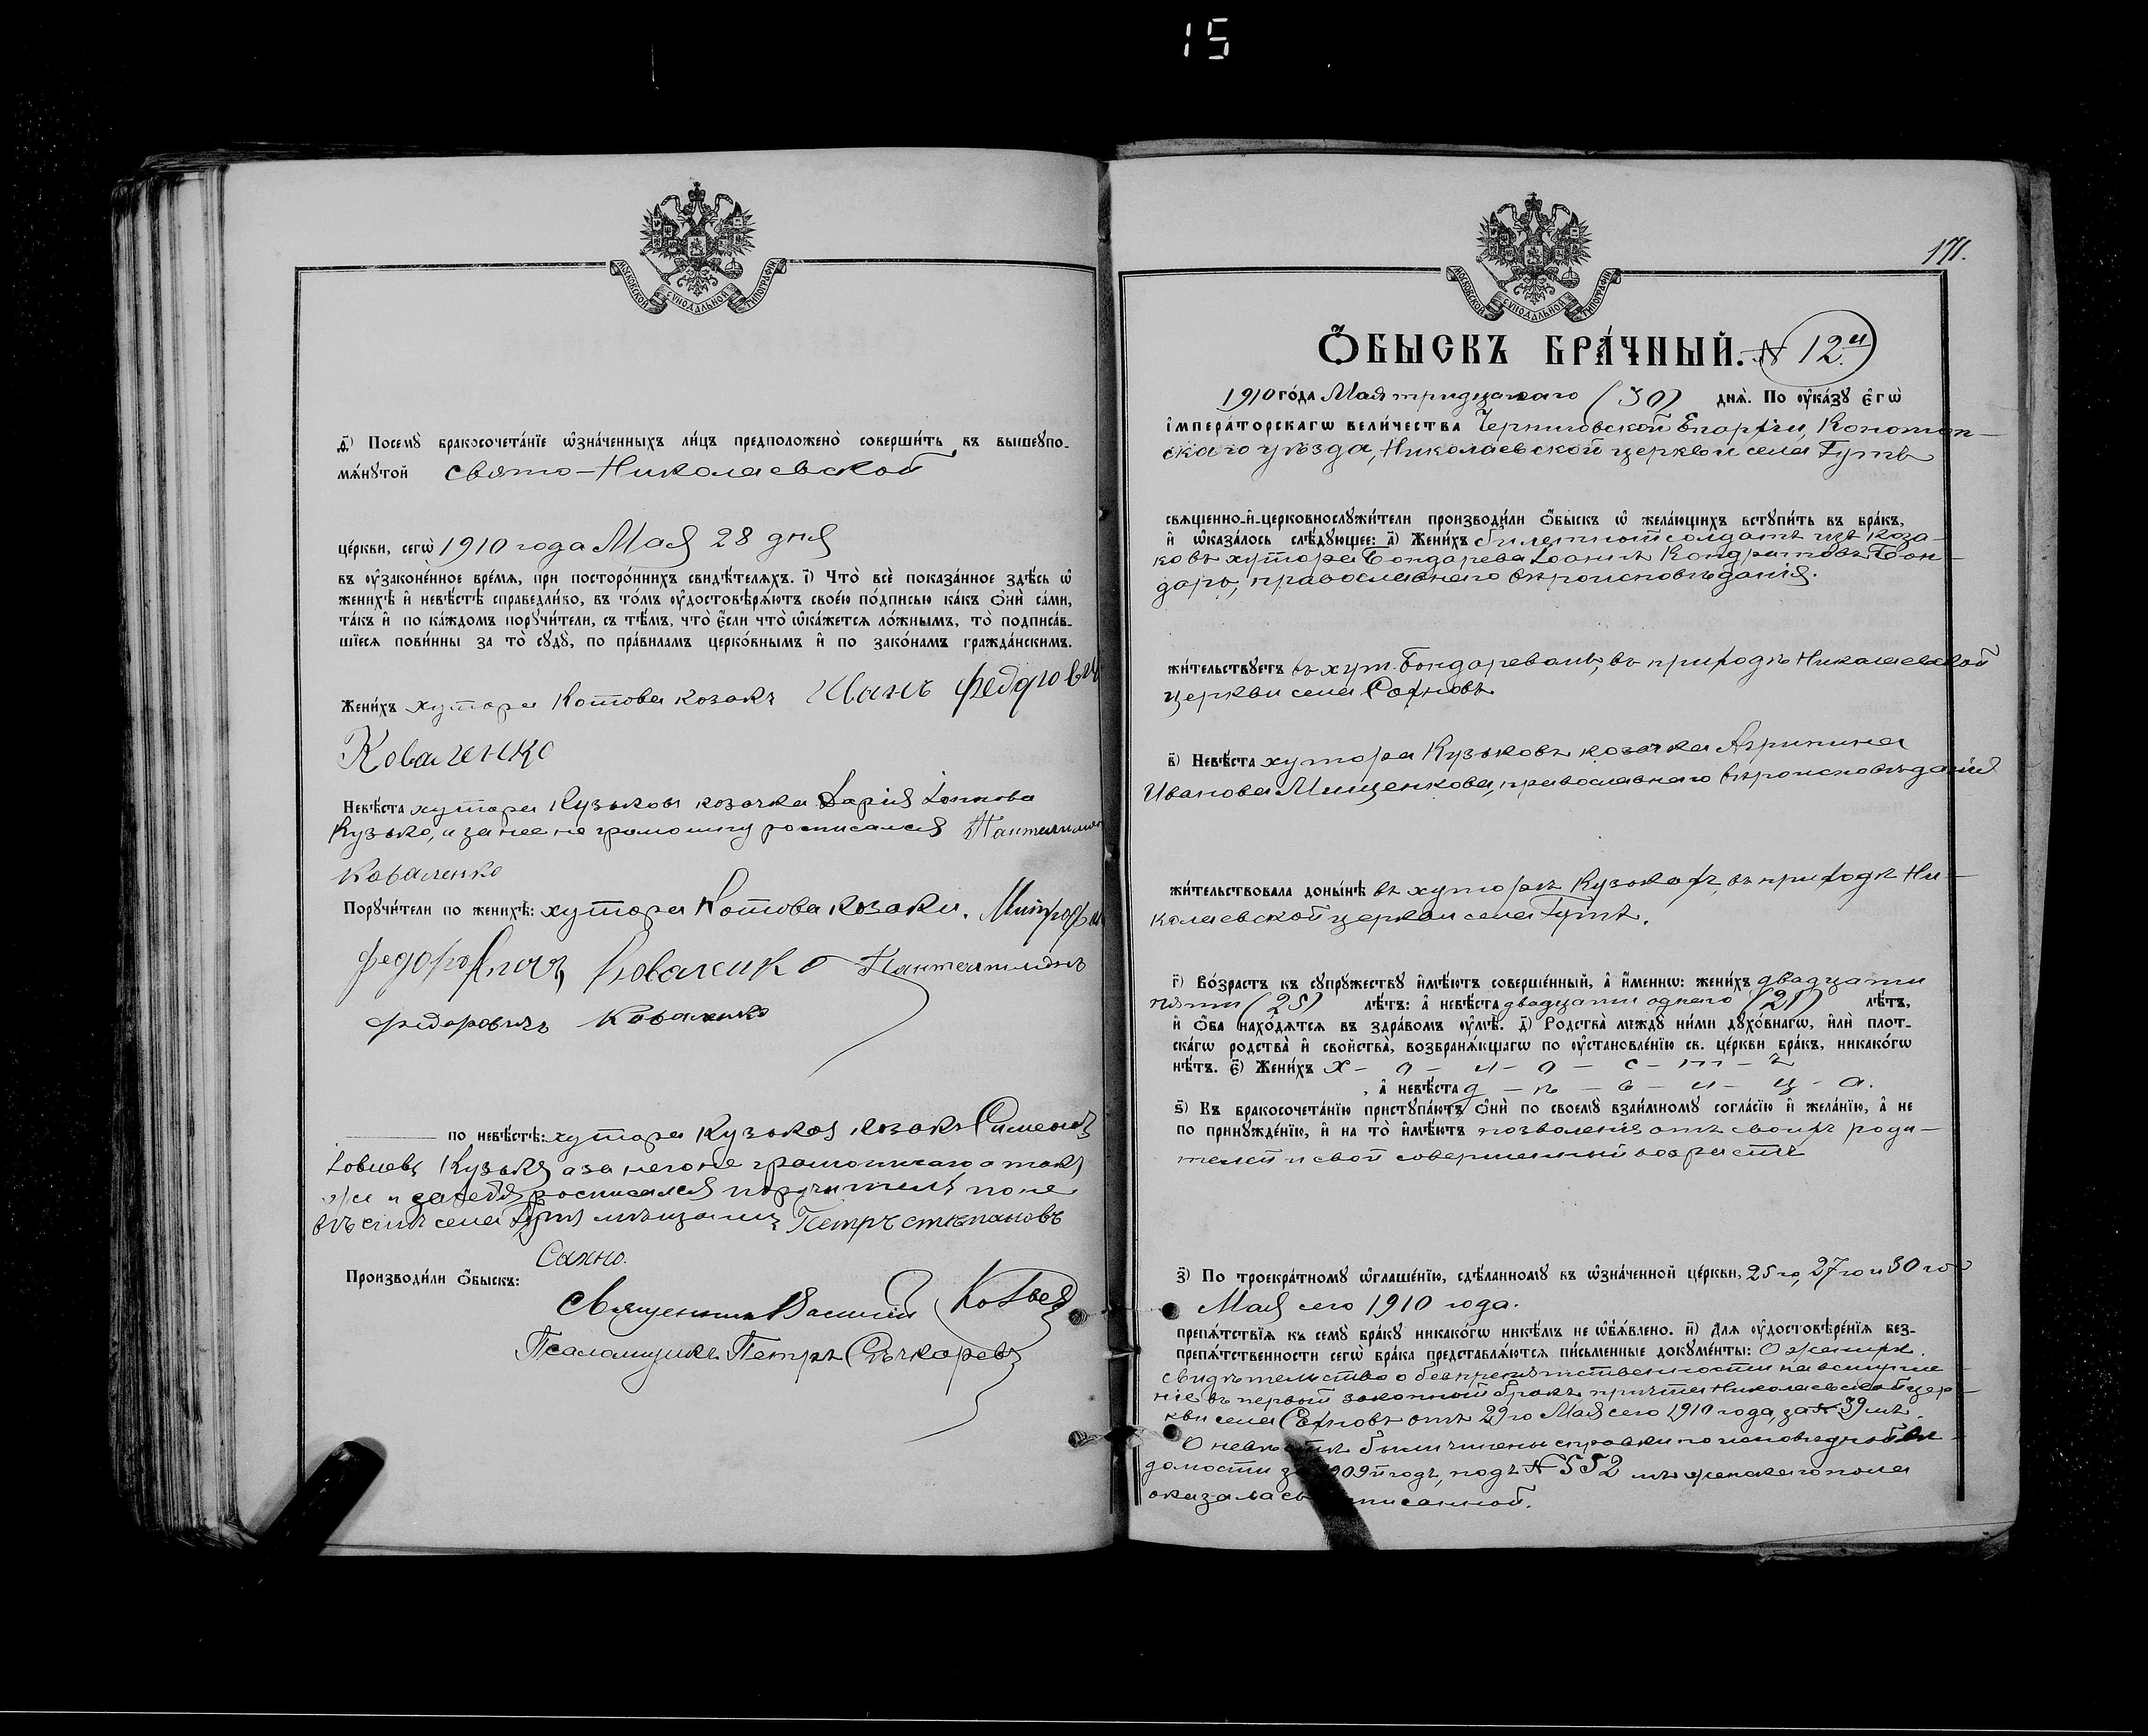 15
МОСКОВСКОЙ СУНОДАЛЬНОЙ ТИПОГРАФІИ
д҃) Посемꙋ бракосочетаніе ѡзначенныхъ лицъ предположено совершить въ вышеꙋпо-
мянꙋтой Свято-Николаевской
церкви, сегѡ 1910 года Мая 28 дня
въ ᲂузаконенное время, при постороннихъ свидѣтеляхъ. і҃) Что все показанное здѣсь ѡ
женихѣ и невѣстѣ справедливо, въ томъ ᲂудостовѣряютъ своею подписью какъ ѻни сами,
такъ и по каждомъ порꙋчители, съ тѣмъ, что если что ѡкажется ложнымъ, то подписав-
шіеся повинны за то сꙋдꙋ, по правиламъ церковнымъ и по законамъ гражданскимъ.
Женихъ хутора Котова козакъ Иванъ Федорович
Коваленко
Невѣста хутора Кузьковъ козачка Дарія Іоаннова
Кузько, а за нее не грамотну росписался Пантелимон
Коваленко
Порꙋчители по женихѣ: хутора Котова козаки. Митрофан
Федоровичъ Коваленко Пантелимонъ
Федоровичъ Коваленко
по невѣстѣ: хутора Кузьков козакъ Симеонъ
Іовлевъ Кузько а за него не грамотнаго а такъ
же и за себя росписался поручитель по не
вѣстѣ села Гутъ мѣщанинъ Петръ Степановъ
Сахно.
Производили ѻбыскъ:
Священникъ Василій
Псаломщикъ Петръ Сѣчкаревъ
МОСКОВСКОЙ СУНОДАЛЬНОЙ ТИПОГРАФІИ
171.
ѺБЫСКЪ БРАЧНЫЙ. № 12й
1910 года Мая тридцатаго (30) дня. По ᲂуказꙋ егѡ
императорскагѡ величества Черниговской Епархіи, Конотоп-
скаго уѣзда, Николаевской церкви села Гутъ
священно-и-церковнослꙋжители производили ѻбыскъ ѡ желающихъ встꙋпить въ бракъ,
и ѡказалось слѣдꙋющее: а҃) Женихъ билетный солдатъ изъ коза-
ковъ хутора Бондарева Іоаннъ Кондратовъ Бон-
дарь, православнаго вѣроисповѣданія.
жительствꙋетъ въ хут. Бондаревомъ, въ приходѣ Николаевской
церкви села Сохновъ
в҃) Невѣста хутора Кузьковъ козачка Агрипина
Иванова Мищенкова, православнаго вѣроисповѣданія
жительствовала донынѣ въ хуторѣ Кузькахъ, въ приходѣ Ни-
колаевской церкви села Гутъ.
г҃) Возрастъ къ сꙋпрꙋжествꙋ имѣютъ совершенный, а именно: женихъ двадцати
пяти (25) лѣтъ: а невѣста двадцати одного (21) лѣтъ,
и ѻба находятся въ здравомъ ᲂумѣ. д҃) Родства междꙋ ними дꙋховнагѡ, или плот-
скагѡ родства и свойства, возбраняющагѡ по ᲂустановленію св. церкви бракъ, никакогѡ
нѣтъ. є҃) Женихъ х - о - л - о - с - т - ъ
, а невѣста д - ѣ - в - и - ц - а.
ѕ҃) Къ бракосочетанію пристꙋпаютъ ѻни по своемꙋ взаимномꙋ согласію и желанію, а не
по принꙋжденію, и на то имѣютъ позволенія отъ своихъ роди-
телей и свой совершенный возрастъ
з҃) По троекратномꙋ ѡглашенію, сдѣланномꙋ въ ѡзначенной церкви, 25го, 27го и 30го
Мая сего 1910 года.
препятствія къ семꙋ бракꙋ никакогѡ никѣмъ не ѡбъявлено. и҃) Для ᲂудостовѣренія без-
препятственности сегѡ брака представляются письменные докꙋменты: О женихѣ
свидѣтельство о безпрепятственности на вступле-
ніе въ первый законный бракъ причта Николаевской цер-
кви села Сохновъ отъ 29го Мая сего 1910 года, за № 39мъ.
О невѣстѣ были чинены справки по исповѣдной вѣ-
домости за 1909й годъ, подъ № 552 мъ женскаго пола
оказалась записанной.